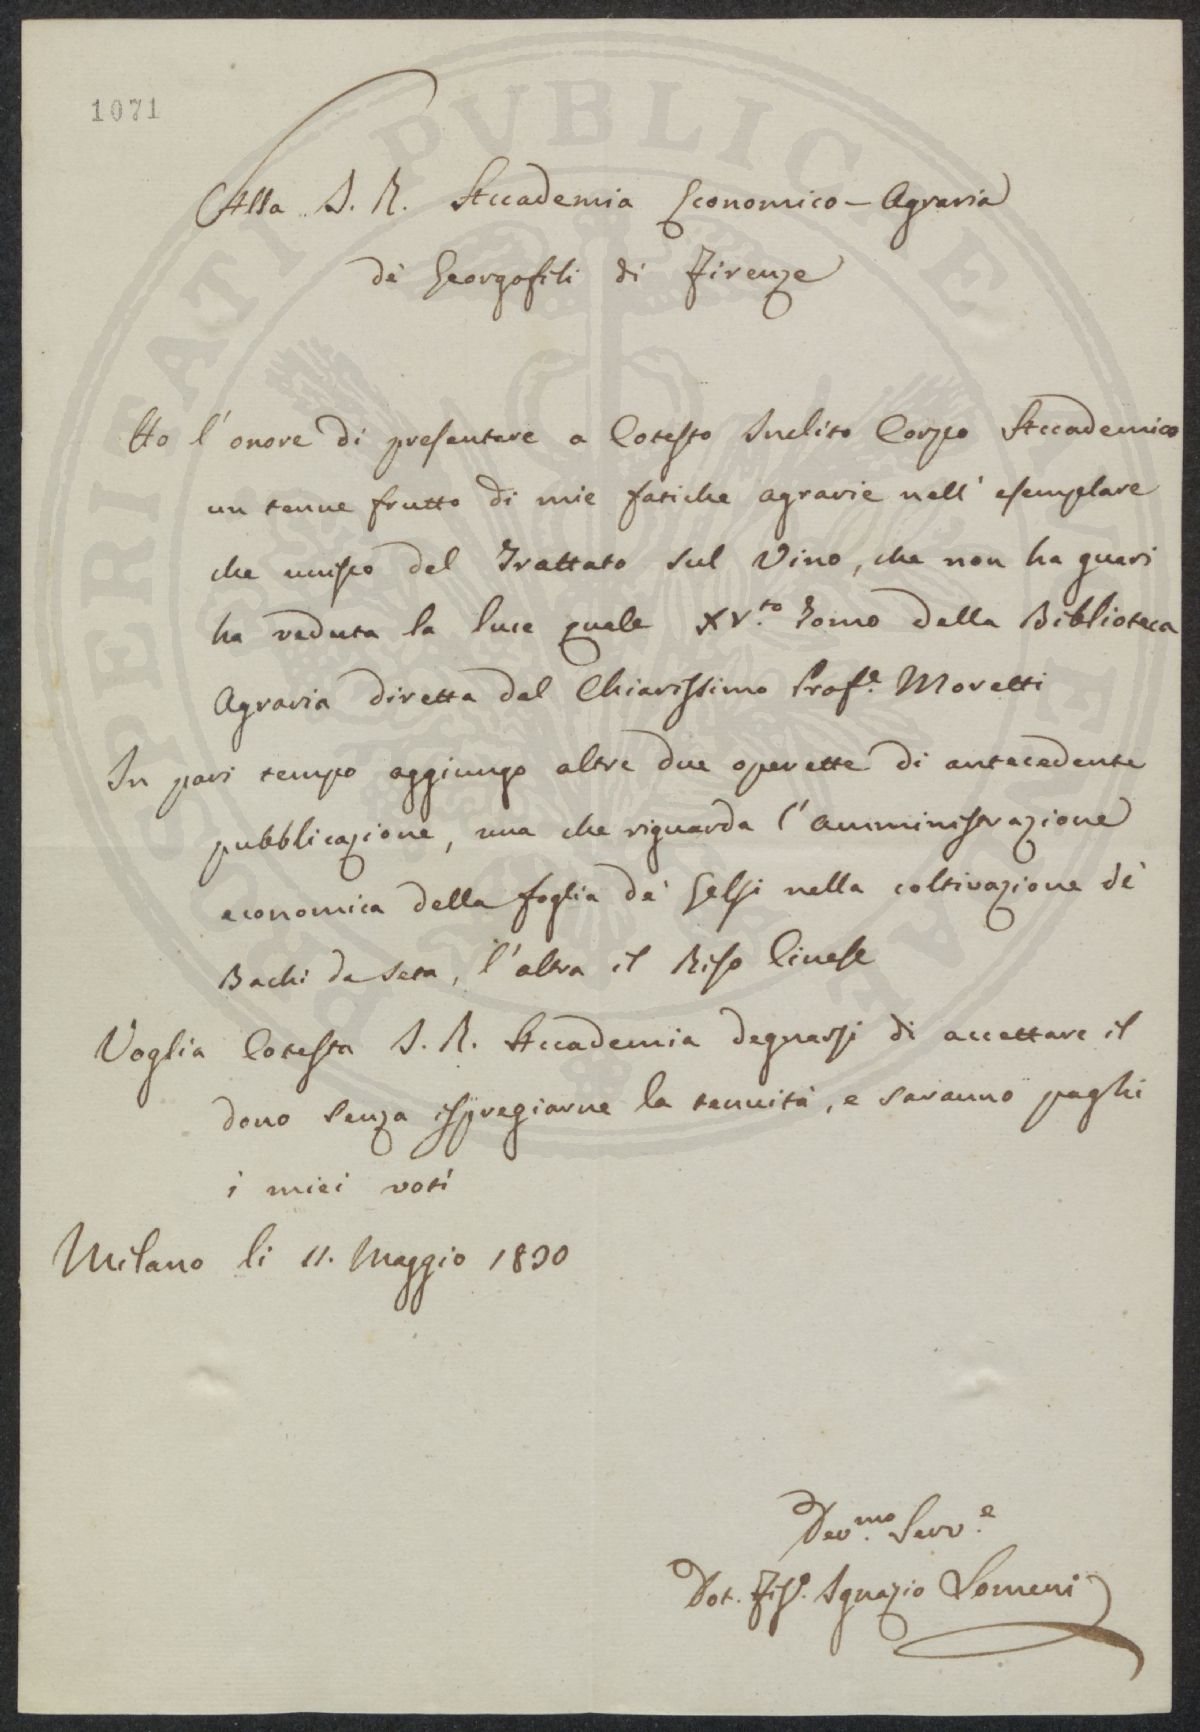 1071
Alla I. R. Accademia Economico-Agraria
de' Georgofili di Firenze
Ho l'onore di presentare a Cotesto Inclito Corpo Accademico
un tenue frutto di mie fatiche agrarie nell'esemplare
che unisco del Trattato sul Vino, che non ha guari
ha veduta la luce quale XV.to Tomo della Biblioteca
Agraria diretta dal Chiarissimo Prof.e Moretti
In pari tempo aggiungo altre due operette di antecedente
pubblicazione, una che riguarda l'amministrazione
economica della foglia de' Gelsi nella coltivazione de'
Bachi da Seta, l'altra il Riso Cinese
Voglia Cotesta I. R. Accademia degnarsi di accettare il
dono senza ispregiarne la tenuità, e saranno paghi
i miei voti
Milano li 11. Maggio 1830
Dev.mo Serv.e
Dot. Fis.o Ignazio Lomeni
PROSPERITATI PVBLICAE AVGENDAE